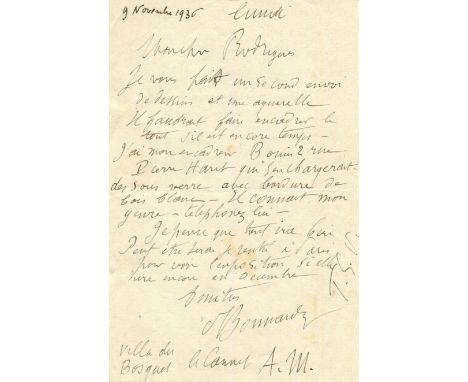 9 Novembre 1936 Lundi
Mon cher Rodrigues
Je vous fais un second envoi
de dessins et une aquarelle
Il faudrait faire encadrer le
tout s'il est encore temps -
J'ai mon encadreur 2 rue
Pierre Haret qui s'en chargerait -
des sous verre avec bordure de
bois blanc - Il connait mon
genre - telephonez lui -
Je pense que tout ira bien
Peut être serai je rentré à
pour voir l'exposition si elle
dure encore en Decembre
Amitiés
P Bonnard
Villa du
Bosquet Le Cannet A. M.